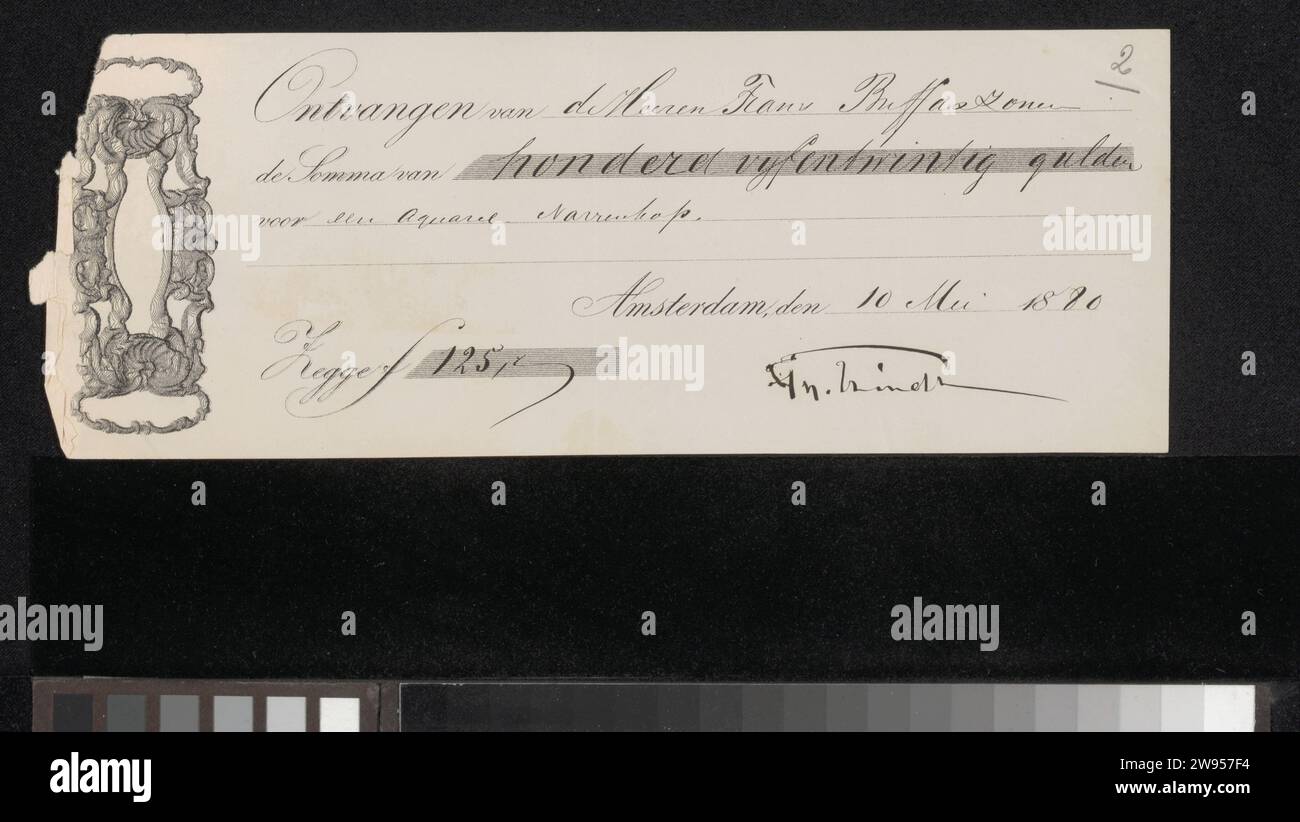 2
Ontvangen van de Heeren Frans Buffa & Zonen
de Somma van honderd vyfentwintig gulden
voor een aquarel Narrenkop.
Amsterdam, den 10 Mei 1880
Zegge f 125,-
alamy
alamy
Image ID: 2W957F4
www.alamy.com